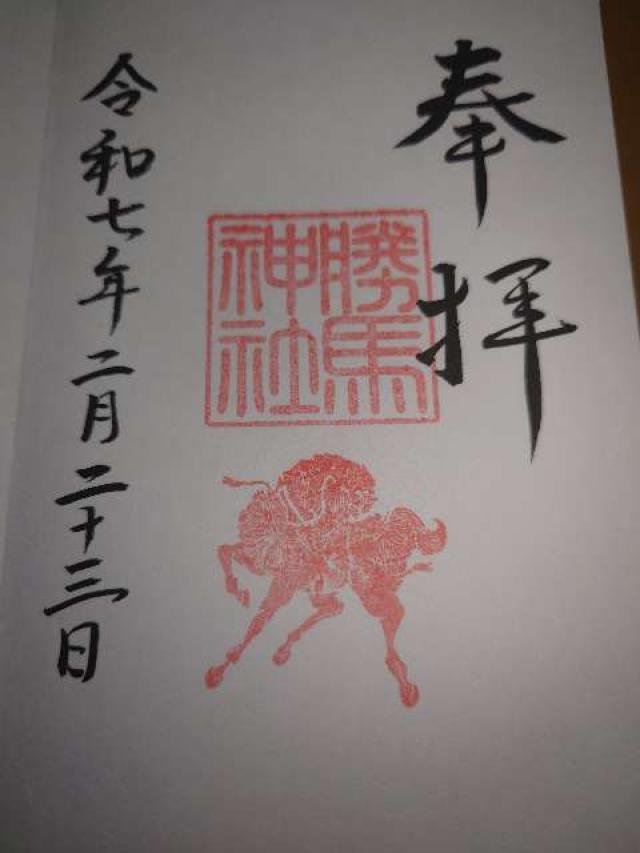 奉拝
勝馬
神社
令和七年二月二十三日